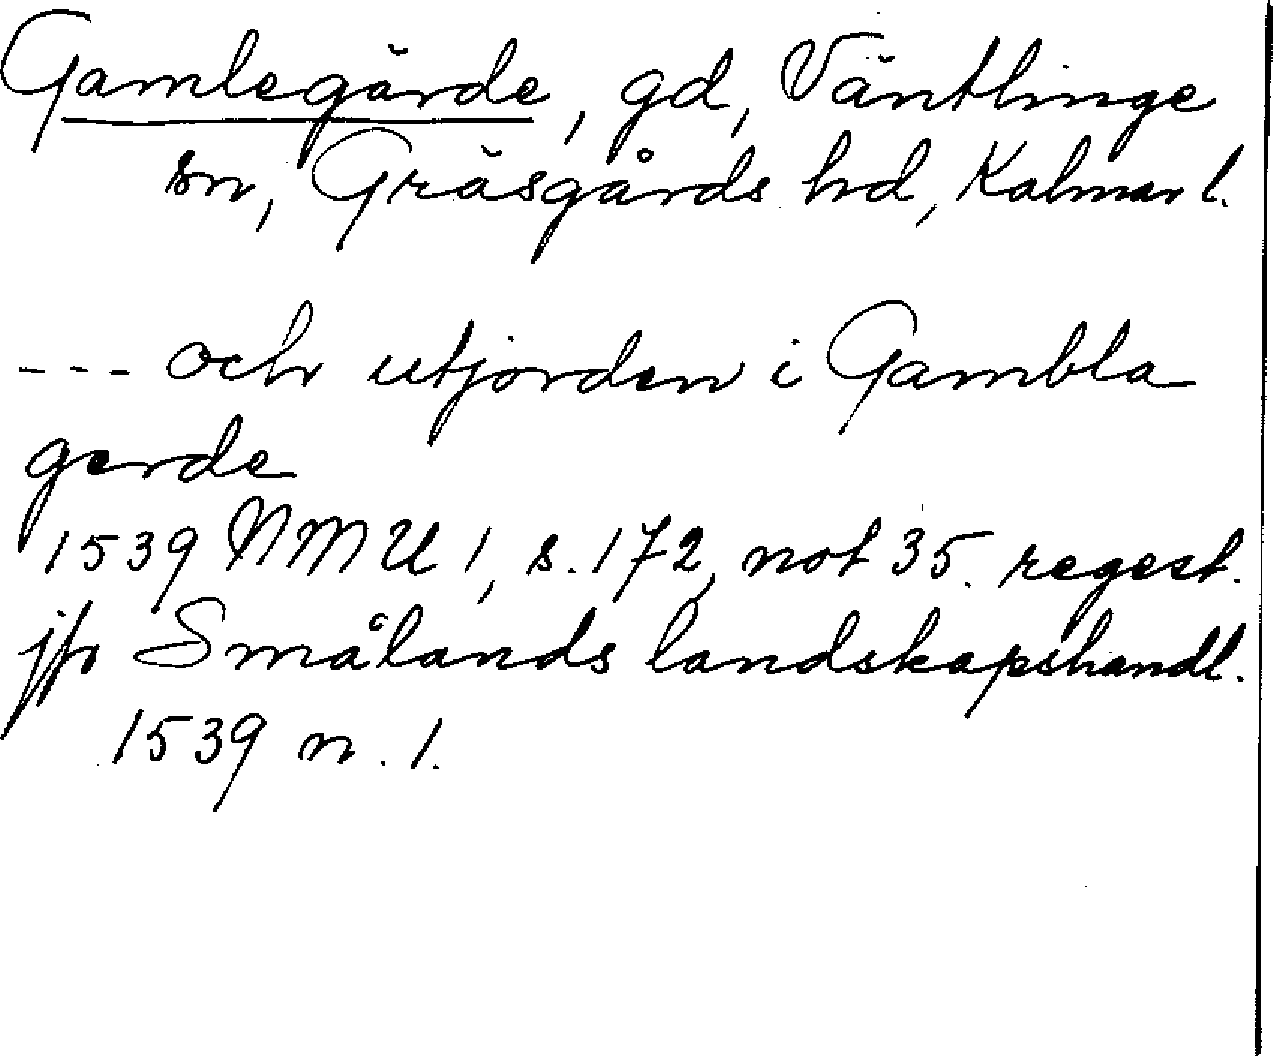 Gamlegärde, gd, Väntlinge
sn, Gräsgårds hd, Kalmar l.
--- och utjorden i Gambla
gerde
1539 NMU 1, s. 172, not 35. regest.
jfr Smålands landskapshandl.
1539 n. 1.